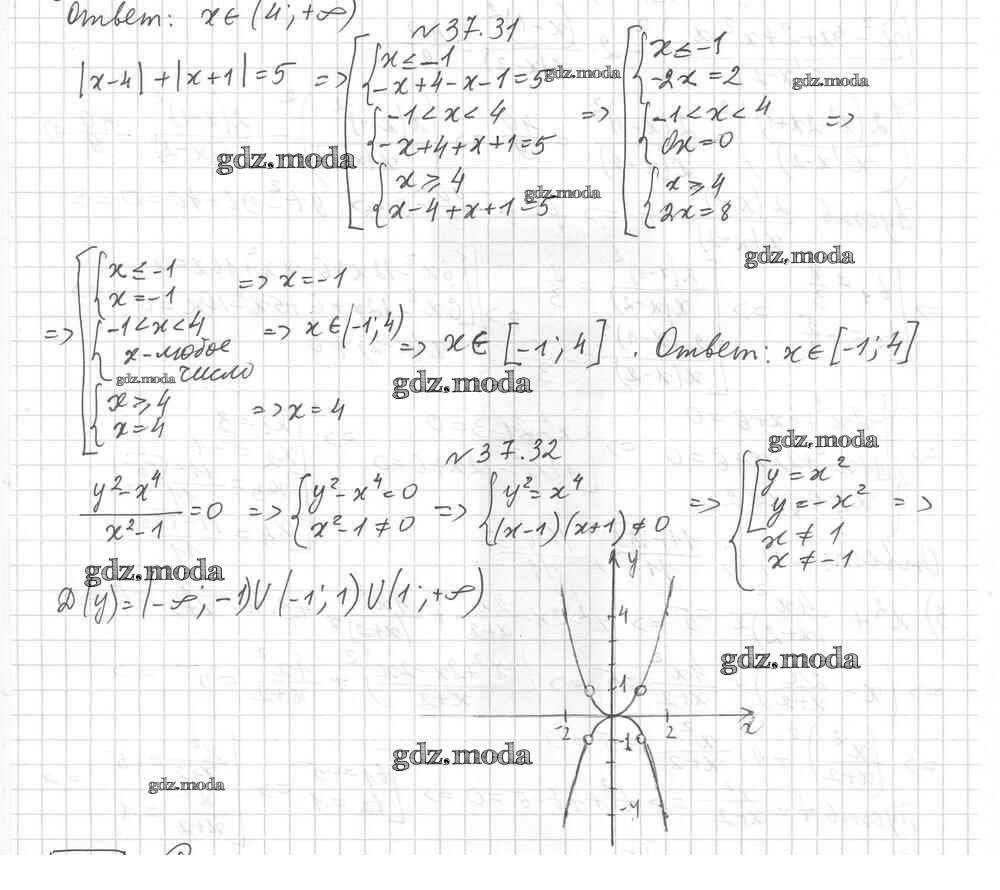 Ответ: x ∈ (4; +∞)
№37.31
|x-4|+|x+1|=5 => [ { x ≤ -1
-x+4-x-1=5
{ -1<x<4
-x+4+x+1=5
{ x ⩾ 4
x-4+x+1=5
=> [ { x ≤ -1
-2x=2
{ -1<x<4
0x=0
{ x ⩾ 4
2x=8
=>
gdz.moda
gdz.moda
gdz.moda
gdz.moda
gdz.moda
=> [ { x ≤ -1
x=-1
=> x=-1
{ -1<x<4
x-любое
число
=> x∈(-1;4)
{ x ⩾ 4
x=4
=> x=4
=> x∈ [-1; 4]. Ответ: x∈ [-1; 4]
gdz.moda
gdz.moda
gdz.moda
№37.32
(y²-x⁴)/(x²-1)=0 => { y²-x⁴=0
x²-1≠0
=> { y²=x⁴
(x-1)(x+1)≠0
=> { [ y=x²
y=-x²
x≠1
x≠-1
=>
gdz.moda
Д(y)=(-∞; -1)U(-1; 1)U(1; +∞)
y
4
1
-2
2
x
-1
-4
gdz.moda
gdz.moda
gdz.moda